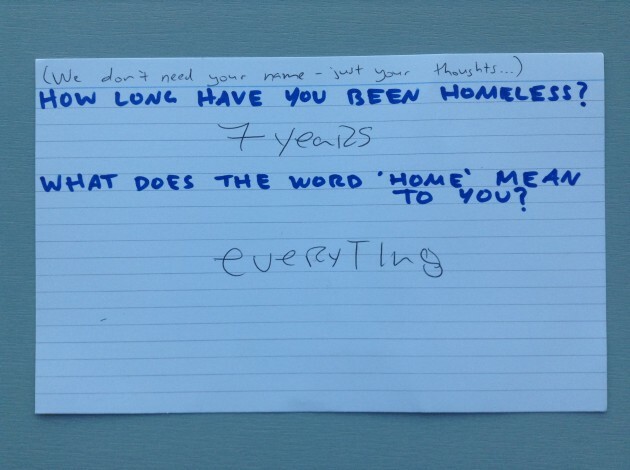 (We don't need your name - just your thoughts...)
HOW LONG HAVE YOU BEEN HOMELESS?
7 years
WHAT DOES THE WORD 'HOME' MEAN
TO YOU?
everyTing